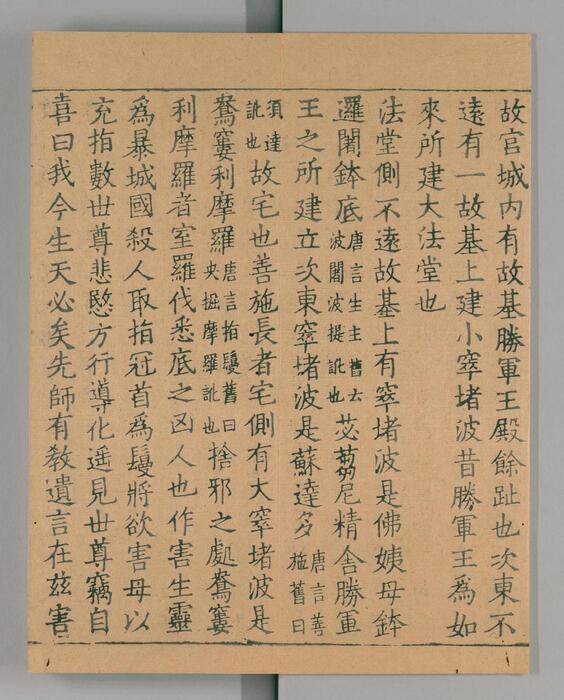 故宫城內有故基勝軍王殿餘趾也次東不
遠有一故基上建小窣堵波昔勝軍王爲如
來所建大法堂也
法堂側不遠故基上有窣堵波是佛姨母鉢
邏闍鉢底唐言生主舊云波闍波提訛也苾蒭尼精舍勝軍
王之所建立次東窣堵波是蘇達多唐言善施舊曰
須達訛也故宅也善施長者宅側有大窣堵波是
鴦窶利摩羅唐言指鬘舊曰央掘摩羅訛也捨邪之處鴦窶
利摩羅者室羅伐悉底之凶人也作害生靈
爲暴城國殺人取指冠首爲鬘將欲害母以
充指數世尊悲愍方行導化遥見世尊竊自
喜曰我今生天必矣先師有教遺言在茲害